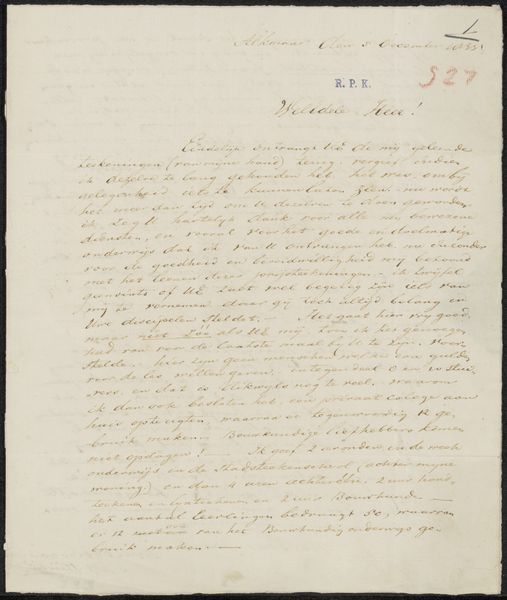 1
Alkmaar den 8 December
R. P. K.
927
WelEdele Heer!
Eindelijk ontvangt UE de mij geleende
teekeningen (van mijne hand) terug, vergeef indien
ik dezelve te lang gehouden heb, het was om bij
gelegenheid iets te kunnen laten zien. nu wordt
het meer dan tijd om te
ik zeg U hartelijk dank voor alle mij bewezene
diensten, en vooral voor het goede en doelmatige
onderwijs dat ik van U ontvangen heb,
voor de goedheid en bereidwilligheid mij betoond
met het leenen dezer prijsteekeningen. ik twijfel
geenzints of UE zult wel begeerig zijn iets van
mij te vernemen daar gij toch altijd belang in
Uwe discipelen steldet. Het gaat hier nog goed,
maar niet zóó als UE mij, toen ik het genoegen
had van voor de laatste maal bij U te zijn, voor-
stelde. hier zijn geen menschen welke een gulden
voor de les willen geven, integendeel 8 en 10 stui-
vers, en dat is dikwijls nog te veel, waarom
ik dan ook besloten heb, een privaat college aan
huis op te rigten, waarvan er tegenwoordig 12 ge-
bruik maken. Bouwkundige liefhebbers komen
niet opdagen! Ik geef 2 avonden in de week
onderwijs in de Stadsteekenschool (achter mijne
woning) en dan 4 uren achtereen. 2 uur hand-
teekenen en 2 uur Bouwkunde
het aantal leerlingen bedraagt 50, waarvan
er 12 van het Bouwkundig onderwijs ge-
bruik maken.